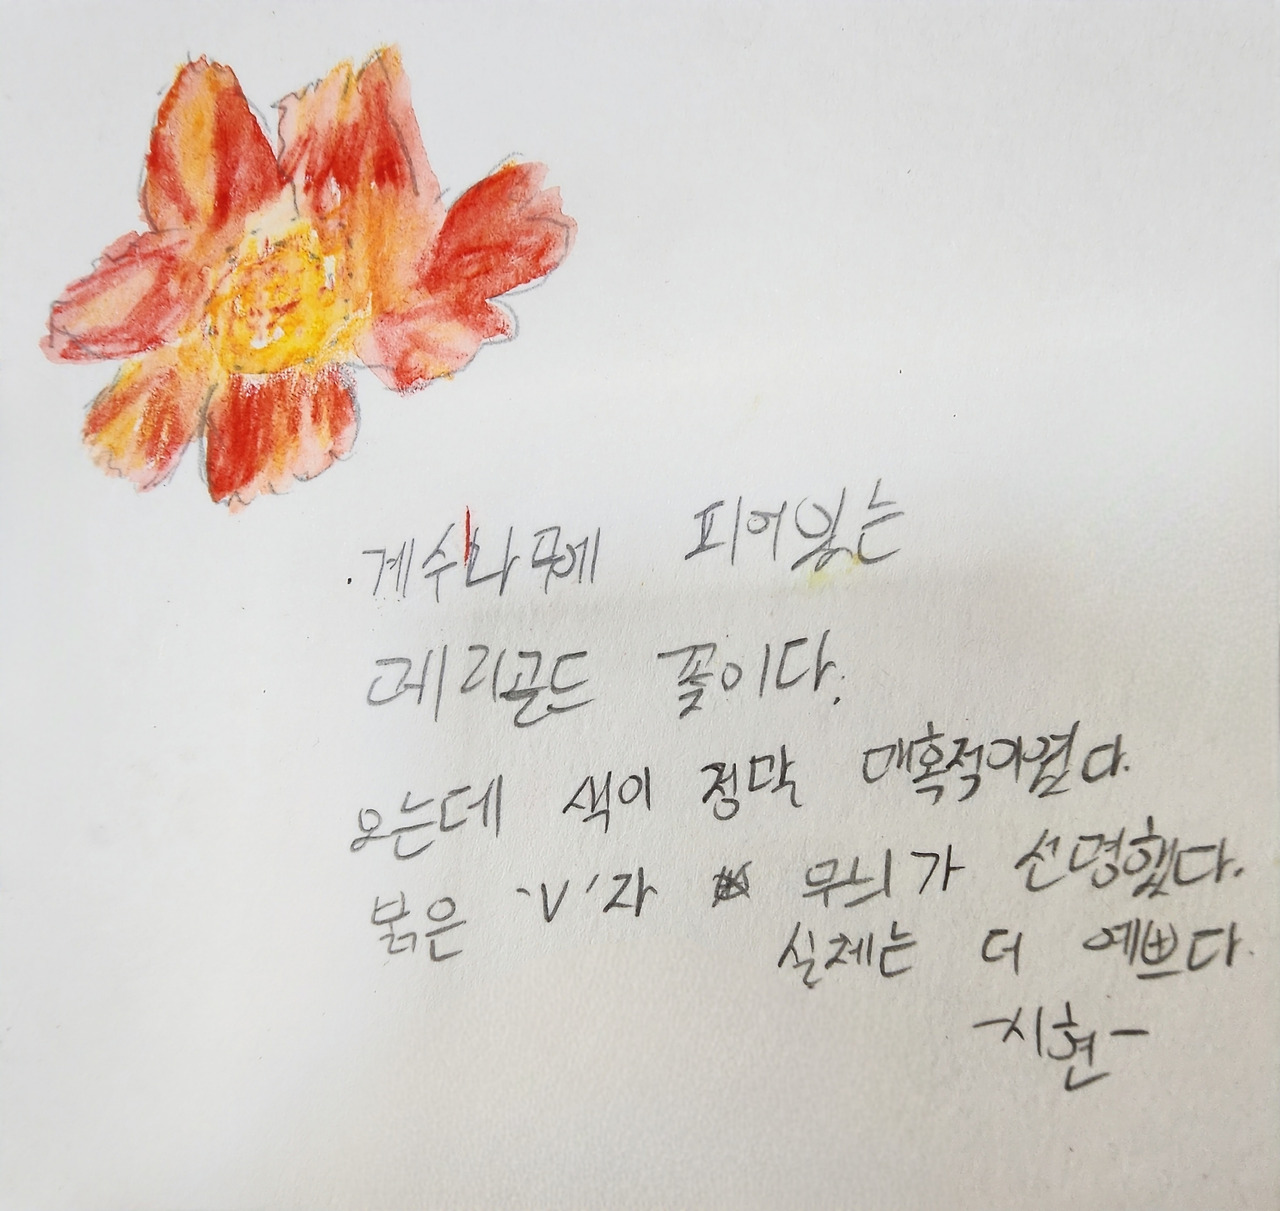 계수나무에 피어있는
메리골드 꽃이다.
오는데 색이 정말 매혹적이였다.
붉은 'V'자 무늬가 선명했다.
실제는 더 예쁘다.
-시현-